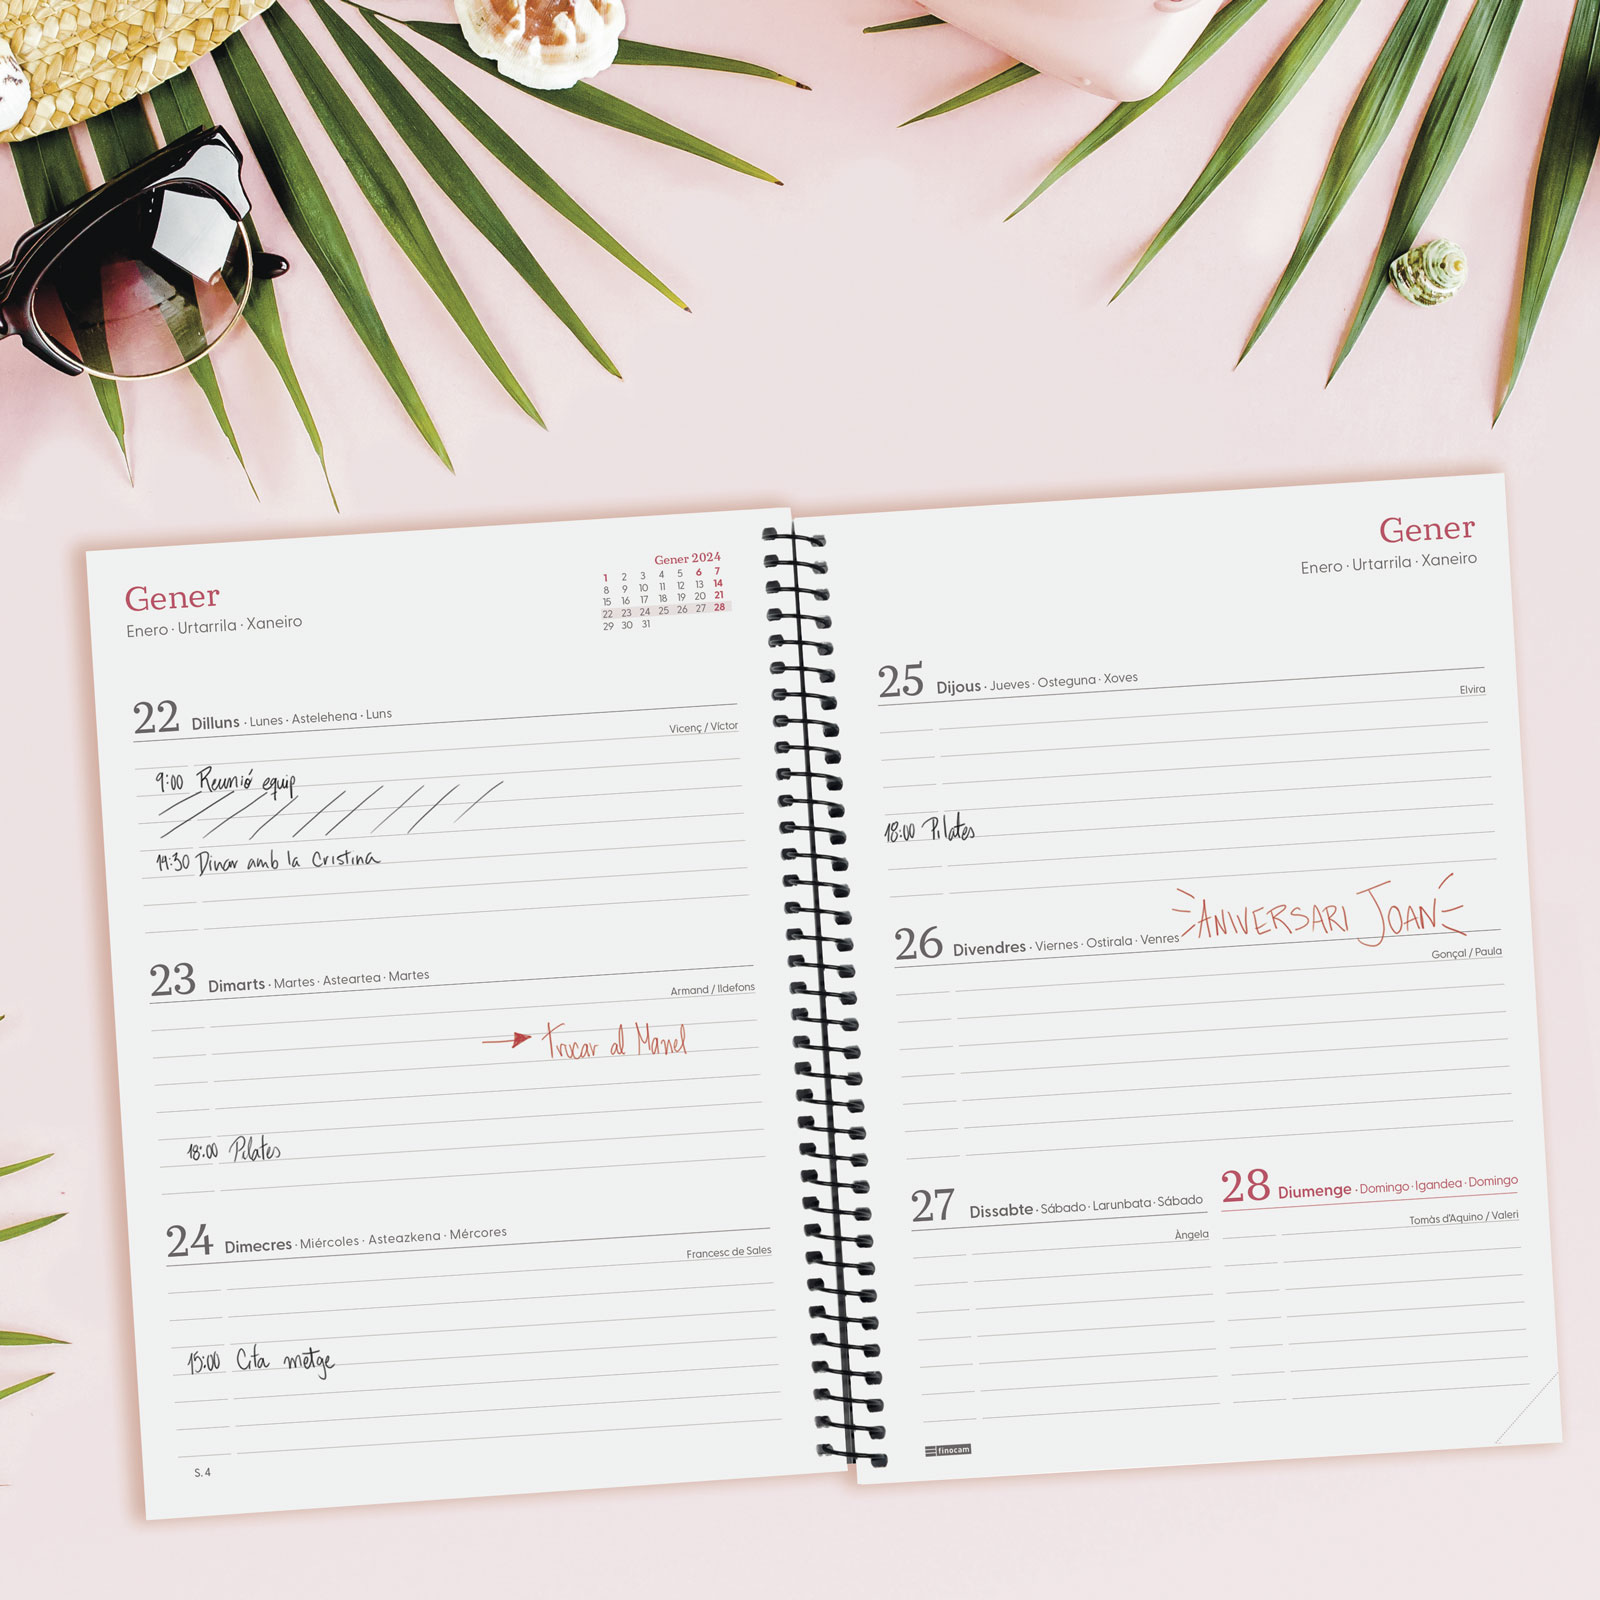 Gener
Enero · Urtarrila · Xaneiro
Gener 2024
1 2 3 4 5 6 7
8 9 10 11 12 13 14
15 16 17 18 19 20 21
22 23 24 25 26 27 28
29 30 31
22 Dilluns · Lunes · Astelehena · Luns
Vicenç / Víctor
9:00 Reunió equip
14:30 Dinar amb la Cristina
23 Dimarts · Martes · Asteartea · Martes
Armand / Ildefons
→ Trucar al Manel
18:00 Pilates
24 Dimecres · Miércoles · Asteazkena · Mércores
Francesc de Sales
15:00 Cita metge
S. 4
Gener
Enero · Urtarrila · Xaneiro
25 Dijous · Jueves · Osteguna · Xoves
Elvira
18:00 Pilates
26 Divendres · Viernes · Ostirala · Venres
ANIVERSARI JOAN
Gonçal / Paula
27 Dissabte · Sábado · Larunbata · Sábado
Àngela
28 Diumenge · Domingo · Igandea · Domingo
Tomàs d'Aquino / Valeri
finocam